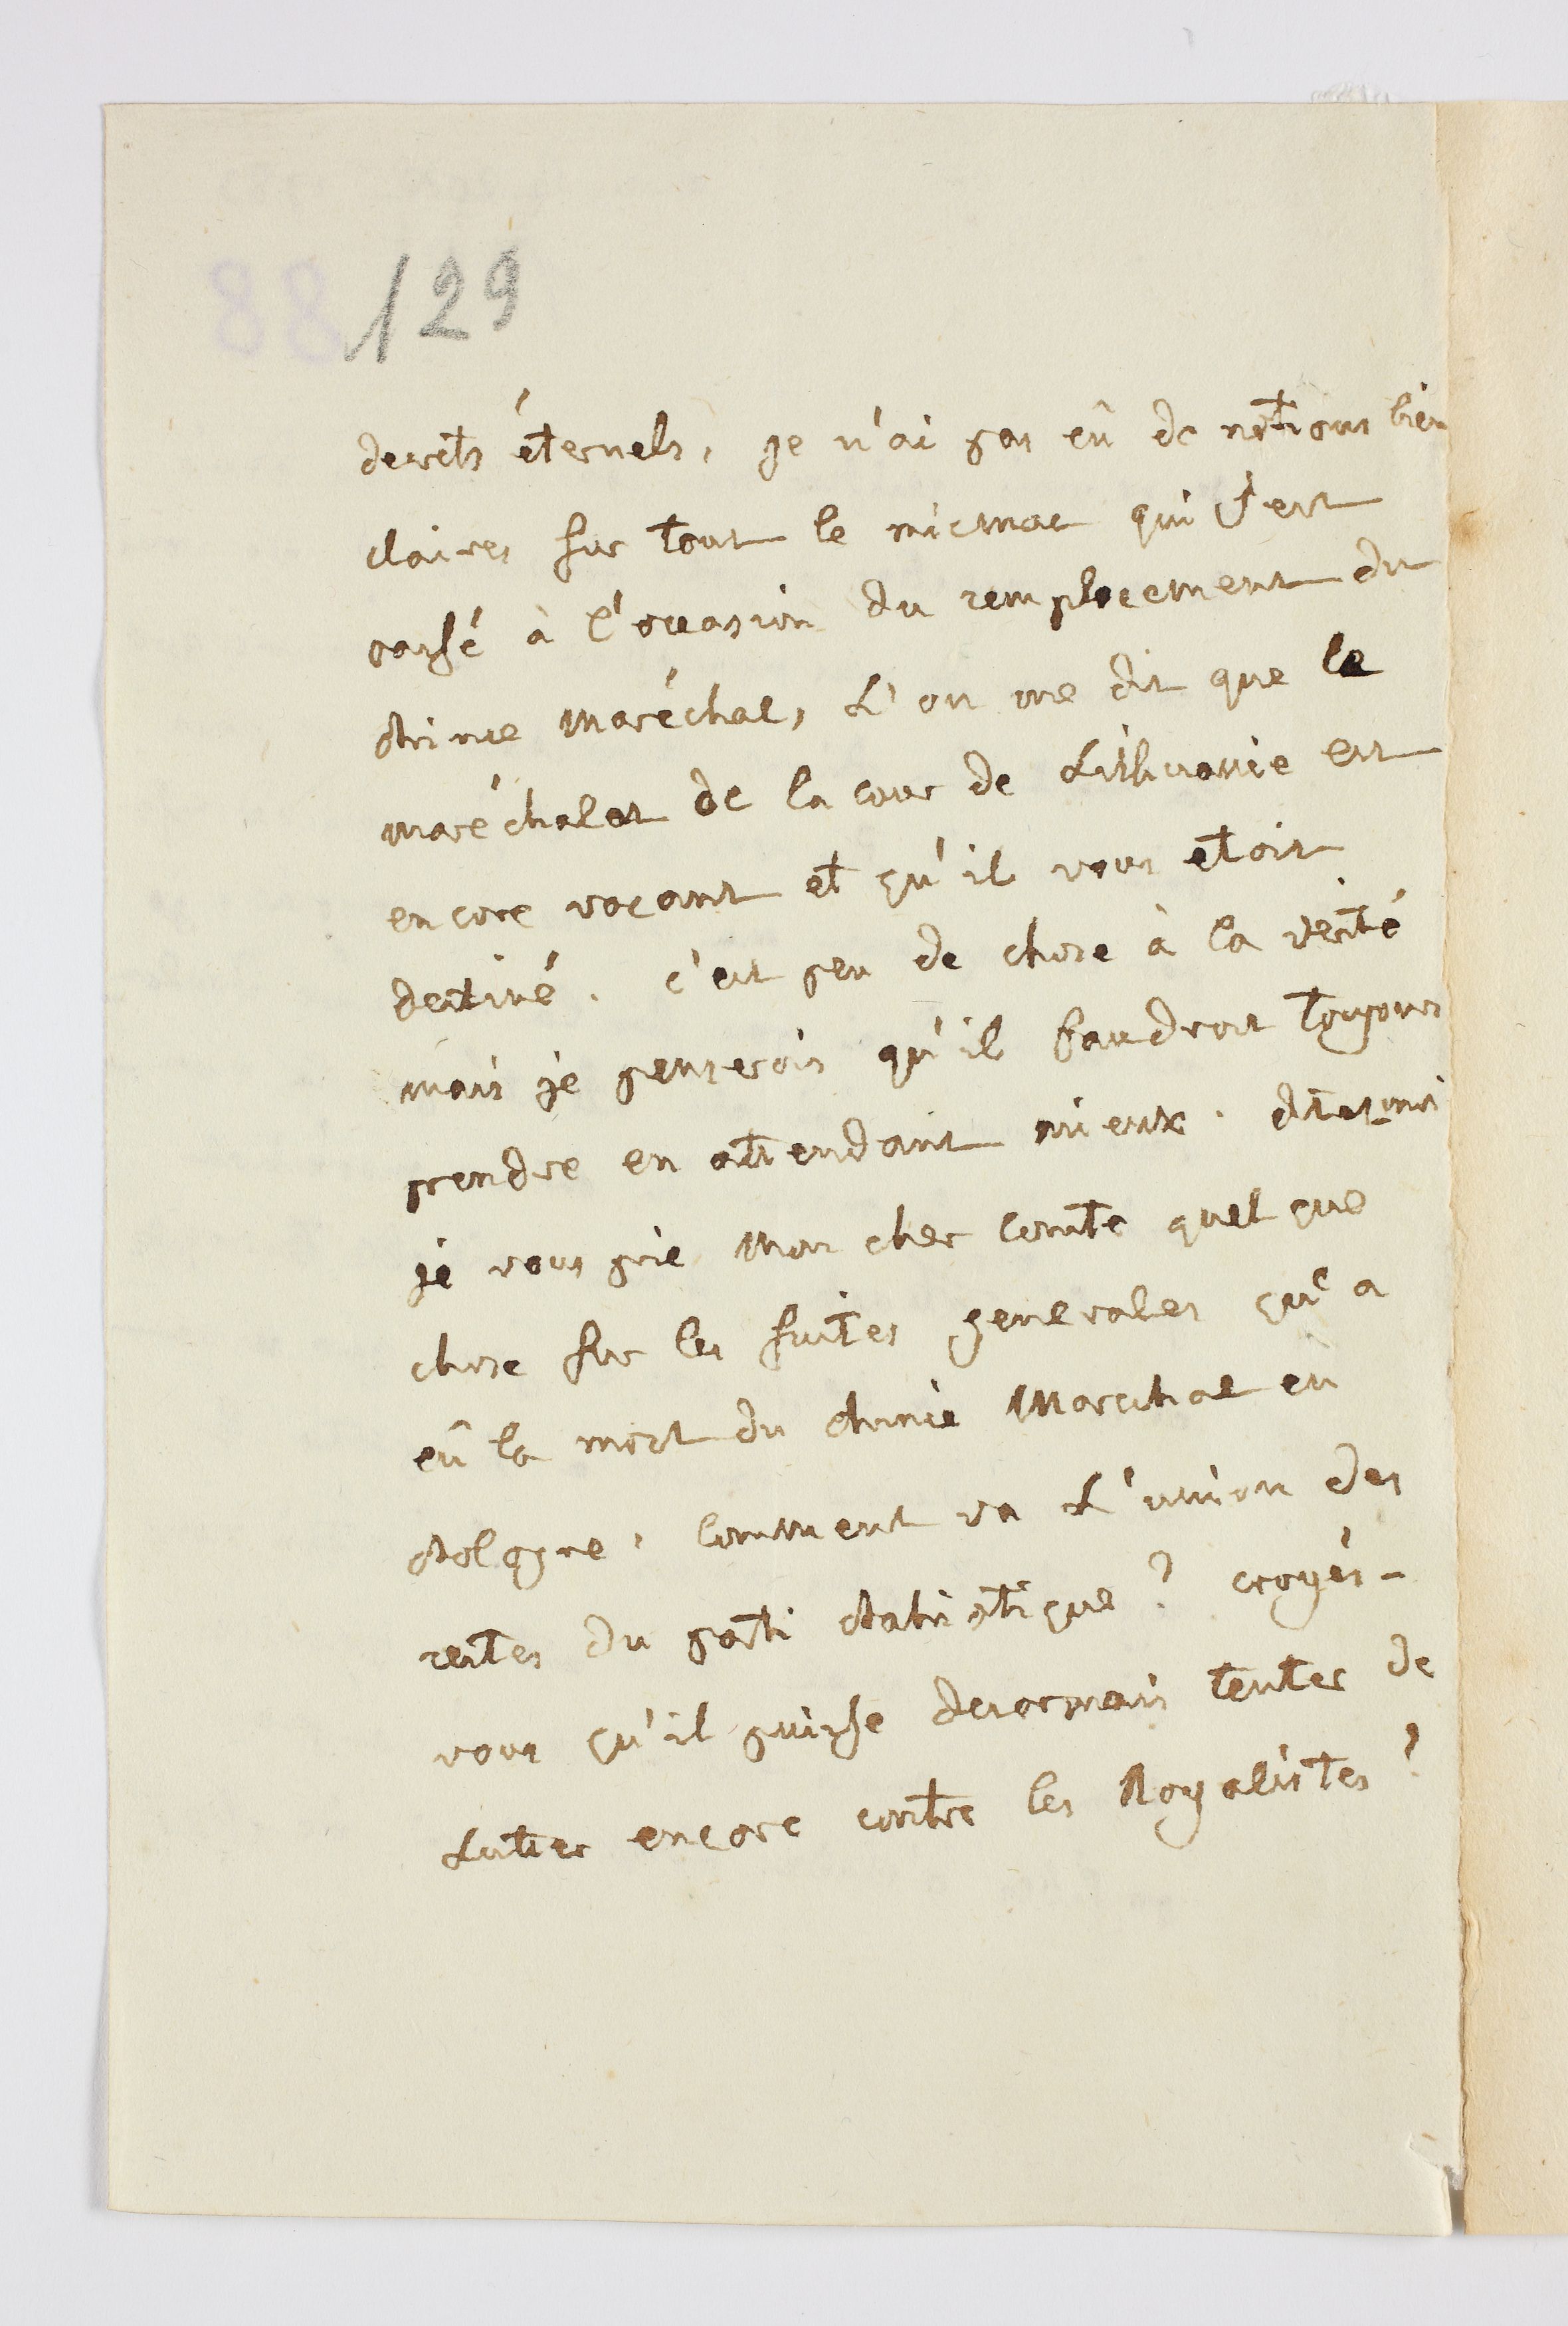 88 129
decrets éternels, je n'ai pas eû de notions bien
claires sur tout le micmac qui s'est
passé à l'occasion du remplacement du
Prince Maréchal, L'on me dit que le
maréchalat de la cour de Lithuanie est
encore vacant et qu'il vous etoit
destiné. c'est peu de chose à la verité
mais je penserois qu'il faudroit toujours
prendre en attendant mieux. dites-moi
je vous prie Mon cher Comte quelque
chose sur les suites generales qu'a
eû la mort du Prince Marechal en
Pologne. Comment va L'union des
restes du parti Patriotique? croyés-
vous qu'il puisse desormais tenter de
Lutter encore contre les Royalistes?